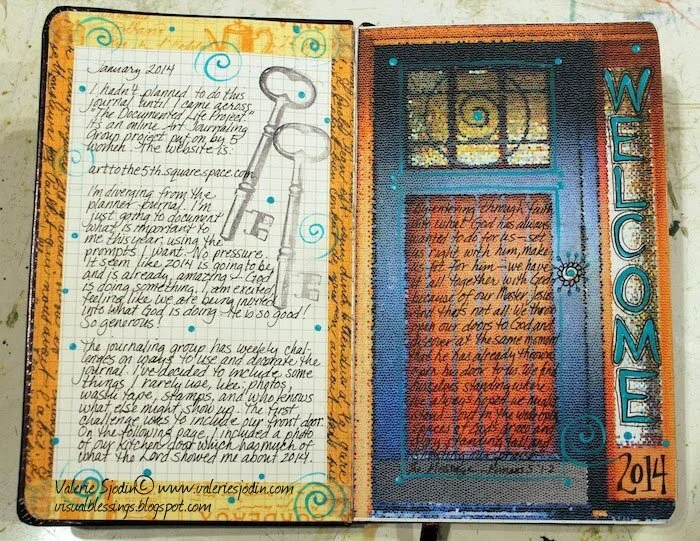 January 2014
I hadn't planned to do this
journal until I came across
"The Documented Life Project."
its an online Art Journaling
Group project put on by 5
women. The website is:
arttothe5th.squarespace.com
I'm diverging from the
planner journal. I'm
just going to document
what is important to
me this year using the
prompts I want. No pressure.
It seems like 2014 is going to be
and is already, amazing - God
is doing something. I am excited,
feeling like we are being invited
into what God is doing. He is so good!
So generous!
The journaling group has weekly chal-
lenges on ways to use and decorate the
journal. I've decided to include some
things I rarely use, like: photos,
washi tape, stamps, and who knows
what else might show up. The first
challenge was to include our front door.
On the following page, I included a photo
of our kitchen door which has much of
what the Lord showed me about 2014.
Valerie Sjodin© www.valeriesjodin.com
visualblessings.blogspot.com
By entering through faith
into what God has always
wanted to do for us - set
us right with him, make
us fit for him - we have
it all together with God
because of our Master Jesus.
And that's not all: We throw
open our doors to God and
discover at the same moment
that he has already thrown
open his door to us. We find
ourselves standing where
we always hoped we might
stand - out in the wide open
spaces of God's grace and
glory, standing tall and
the Message Romans 5:1-2
WELCOME
2014